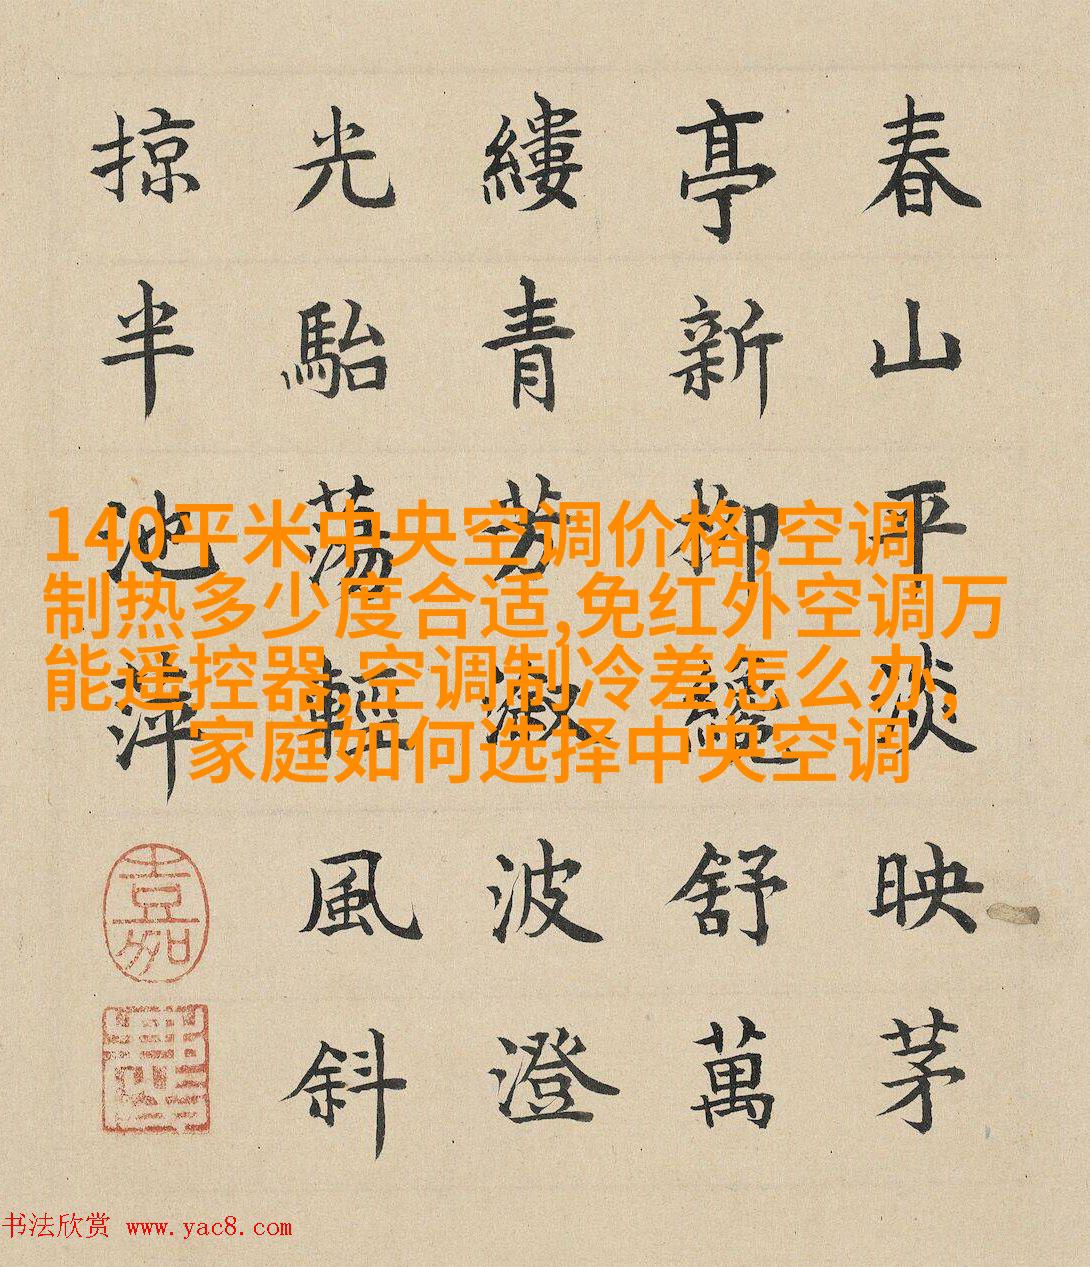 春山平淡映茅
亭新柳纔舒萬
縷青芳漵波澄
光駘蕩輕風斜
掠半池萍
嘉
140平米中央空调价格,空调
制热多少度合适,免红外空调万
能遥控器,空调制冷差怎么办,
家庭如何选择中央空调
书法欣赏 www.yac8.com